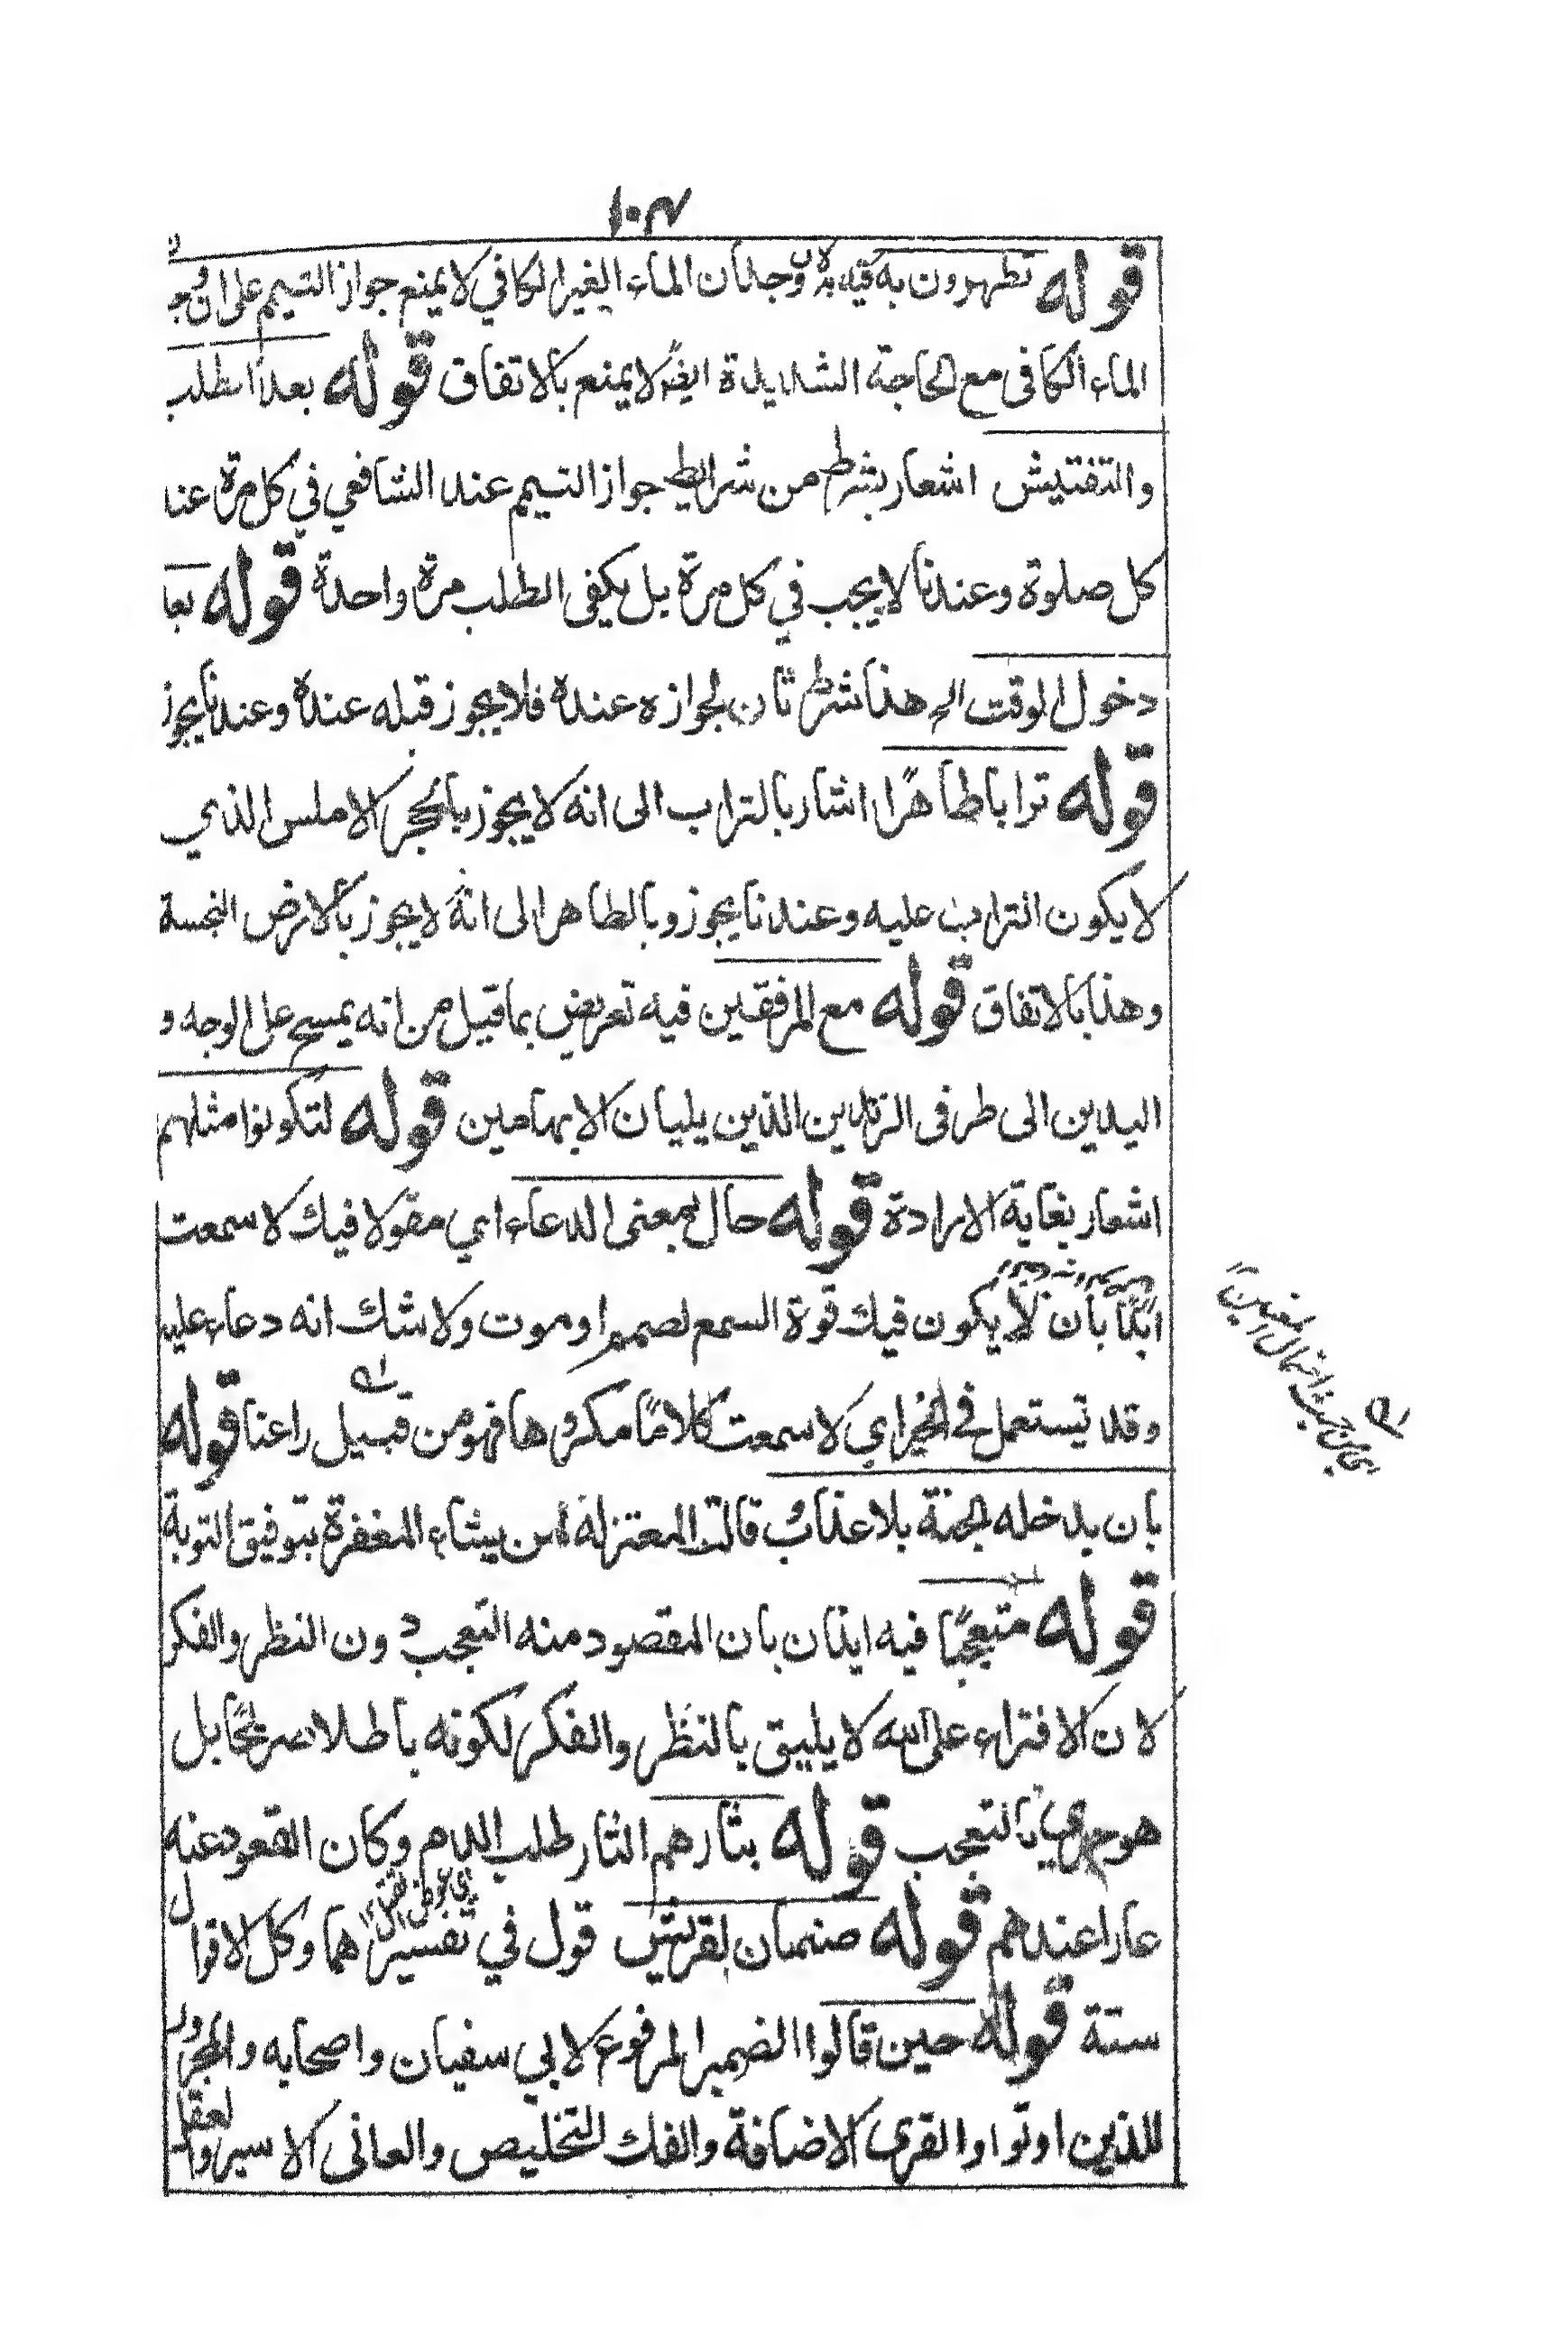 ١٠٣
قوله تطهرون به قيد به لان وجدان الماء الغير الكافي لا يمنع جواز التيمم على ان وجود
الماء الكافى مع الحاجة الشديدة ايضا لا يمنع بالاتفاق قوله بعد الطلب
والتفتيش اشعار بشرط من شرايط جواز التيمم عند الشافعي في كل مرة عند
كل صلوة وعندنا لا يجب في كل مرة بل يكفى الطلب مرة واحدة قوله بعد
دخول الوقت الخ هذا شرط ثان لجوازه عنده فلا يجوز قبله عنده وعندنا يجوز
قوله ترابا طاهرًا اشار بالتراب الى انه لا يجوز بالحجر الاملس الذي
لا يكون التراب عليه وعندنا يجوز وبالطاهر الى انه لا يجوز بالارض النجسة
وهذا بالاتفاق قوله مع المرفقين فيه تعريض بما قيل من انه يمسح على الوجه و
اليدين الى طرفى الزندين الذين يليان الابهامين قوله لتكونوا مثلهم
اشعار بغاية الارادة قوله حال بمعنى الدعاء اي مقولا فيك لا سمعت
ابدًا بان لا يكون فيك قوة السمع لصمم او موت ولا شك انه دعاء عليه
وقد تستعمل في الخير اي لا سمعت كلامًا مكروها فهو من قبيل راعنا قوله
بان يدخله الجنة بلا عذاب قالت المعتزلة لمن يشاء المغفرة بتوفيق التوبة
قوله متعجبًا فيه ايذان بان المقصود منه التعجب دون النظر والفكر
لان الافتراء على الله لا يليق بالنظر والفكر لكونه باطلا صريحًا بل
هو حري بالتعجب قوله بثارهم الثار طلب الدم وكان القعود عنه
عارا عندهم قوله صنمان لقريش قول في تفسيرهما وكل الاقوال
ستة قوله حين قالوا الضمير المرفوع لابي سفيان واصحابه والمجرور
للذين اوتوا والقرى الاضافة والفك التخليص والعانى الاسير والعقل
اى